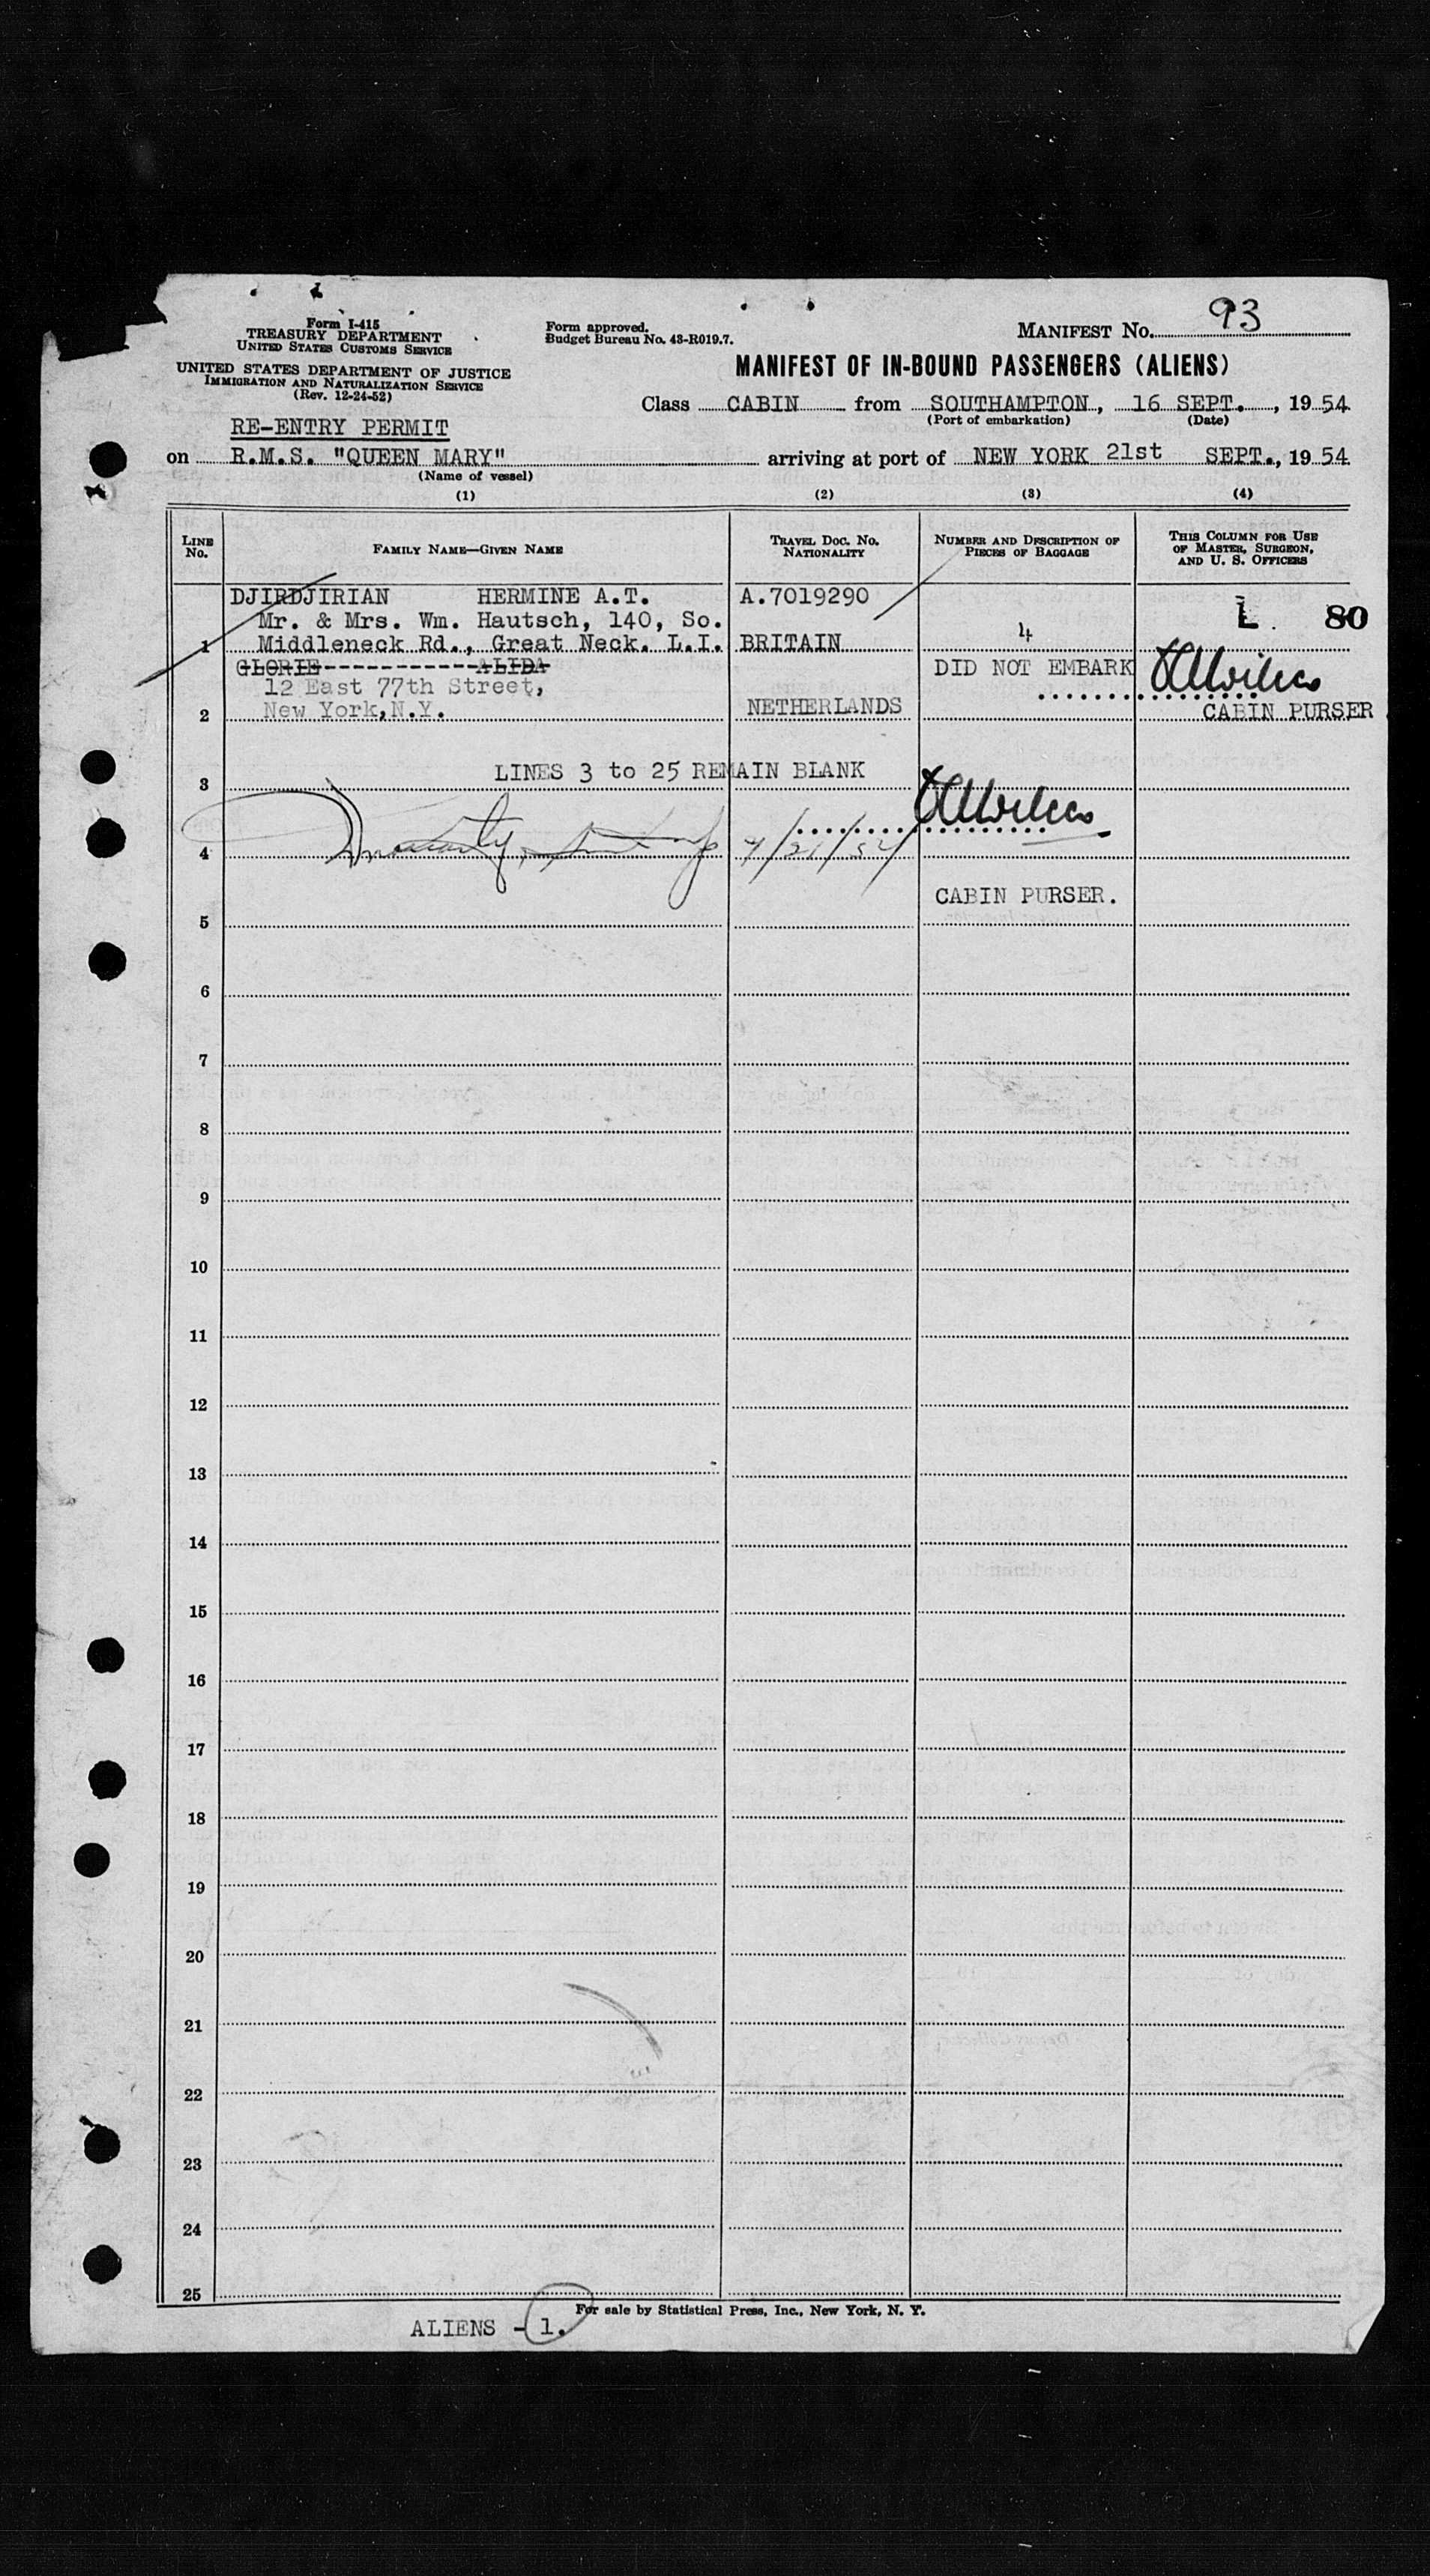 Form I-415
TREASURY DEPARTMENT
UNITED STATES CUSTOMS SERVICE
UNITED STATES DEPARTMENT OF JUSTICE
IMMIGRATION AND NATURALIZATION SERVICE
(Rev. 12-24-52)
Form approved.
Budget Bureau No. 43-R019.7.
MANIFEST No. 93
MANIFEST OF IN-BOUND PASSENGERS (ALIENS)
Class CABIN from SOUTHAMPTON, 16 SEPT., 1954
(Port of embarkation) (Date)
RE-ENTRY PERMIT
on R.M.S. "QUEEN MARY" arriving at port of NEW YORK 21st SEPT., 1954
(Name of vessel)
(1) (2) (3) (4)
LINE No. FAMILY NAME—GIVEN NAME TRAVEL DOC. NO. NATIONALITY NUMBER AND DESCRIPTION OF PIECES OF BAGGAGE THIS COLUMN FOR USE OF MASTER, SURGEON, AND U. S. OFFICERS
DJIRDJIRIAN HERMINE A.T. A.7019290
Mr. & Mrs. Wm. Hautsch, 140, So. L. 80
1 Middleneck Rd., Great Neck. L.I. BRITAIN 4
GLORIE------------ALIDA DID NOT EMBARK
12 East 77th Street,
2 New York, N.Y. NETHERLANDS CABIN PURSER
LINES 3 to 25 REMAIN BLANK
3
4 9/21/54
CABIN PURSER.
5
6
7
8
9
10
11
12
13
14
15
16
17
18
19
20
21
22
23
24
25
For sale by Statistical Press, Inc., New York, N. Y.
ALIENS - 1.